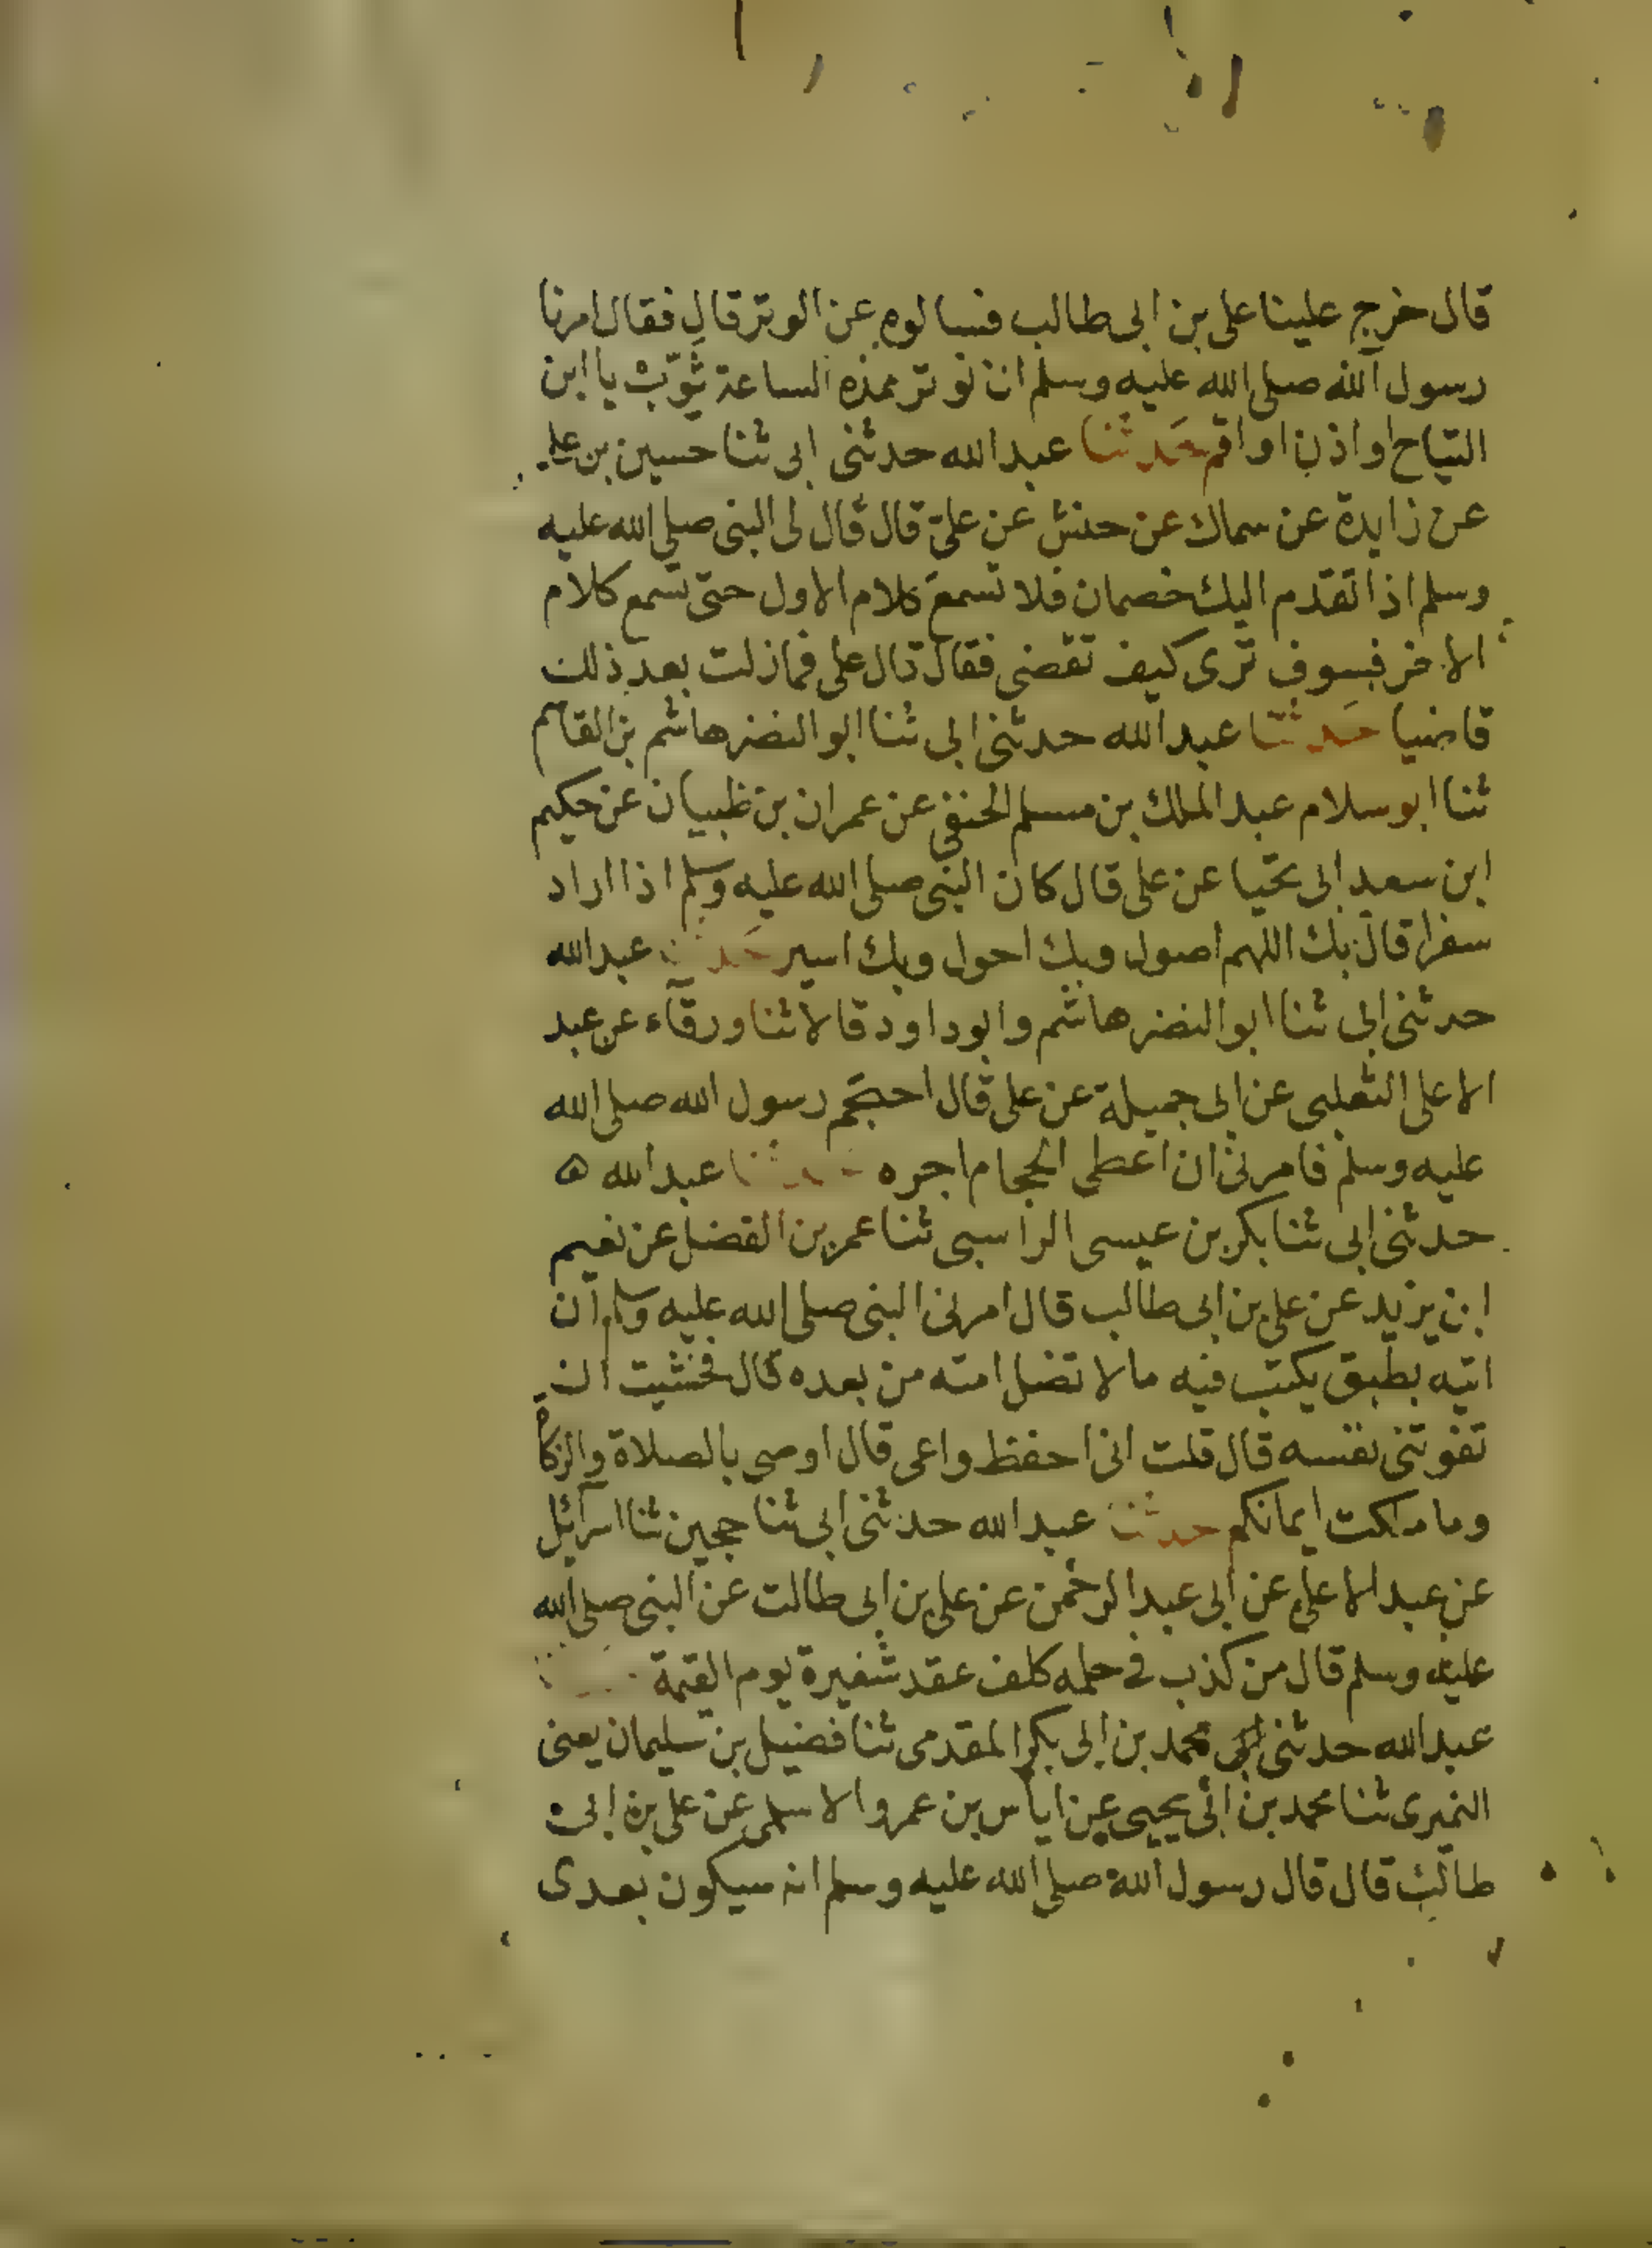 قال خرج علينا على بن ابى طالب فسالوه عن الوتر قال فقال امرنا
رسول الله صلى الله عليه وسلم ان نوتر هذه الساعة ثوّب يا ابن
التياح او اذن او اقم حدثنا عبد الله حدثنى ابى ثنا حسين بن على
عن زايدة عن سماك عن حنش عن علىّ قال قال لى النبى صلى الله عليه
وسلم اذا تقدم اليك خصمان فلا تسمع كلام الاول حتى تسمع كلام
الاخر فسوف ترى كيف تقضى فقال قال على فما زلت بعد ذلك
قاضيا حدثنا عبد الله حدثنى ابى ثنا ابو النضر هاشم بن القاسم
ثنا ابو سلام عبد الملك بن مسلم الحنفى عن عمران بن ظبيان عن حكيم
ابن سعد ابى تحيا عن على قال كان النبى صلى الله عليه وسلم اذا اراد
سفرا قال بك اللهم اصول وبك احول وبك اسير حدثنا عبد الله
حدثنى ابى ثنا ابو النضر هاشم وابو داود قالا ثنا ورقآء عن عبد
الاعلى الثعلبى عن ابى جميلة عن على قال احتجم رسول الله صلى الله
عليه وسلم فامرنى ان اعطى الحجام اجره حدثنا عبد الله ه
حدثنى ابى ثنا بكر بن عيسى الراسبى ثنا عمر بن الفضل عن نعيم
ابن يزيد عن على بن ابى طالب قال امرنى النبى صلى الله عليه وسلم ان
اتيه بطبق يكتب فيه ما لا تضل امته من بعده قال فخشيت ان
تفوتنى نفسه قال قلت انى احفظ واعى قال اوصى بالصلاة والزكاة
وما ملكت ايمانكم حدثنا عبد الله حدثنى ابى ثنا حجين ثنا اسرآئيل
عن عبد الاعلى عن ابى عبد الرحمن عن على بن ابى طالب عن النبى صلى الله
عليه وسلم قال من كذب فى حلمه كلف عقد شعيرة يوم القيمة
عبد الله حدثنى محمد بن ابى بكر المقدمى ثنا فضيل بن سليمان يعنى
النميرى ثنا محمد بن ابى يحيى عن اياس بن عمرو الاسلمى عن على بن ابى
طالب قال قال رسول الله صلى الله عليه وسلم انه سيكون بعدى